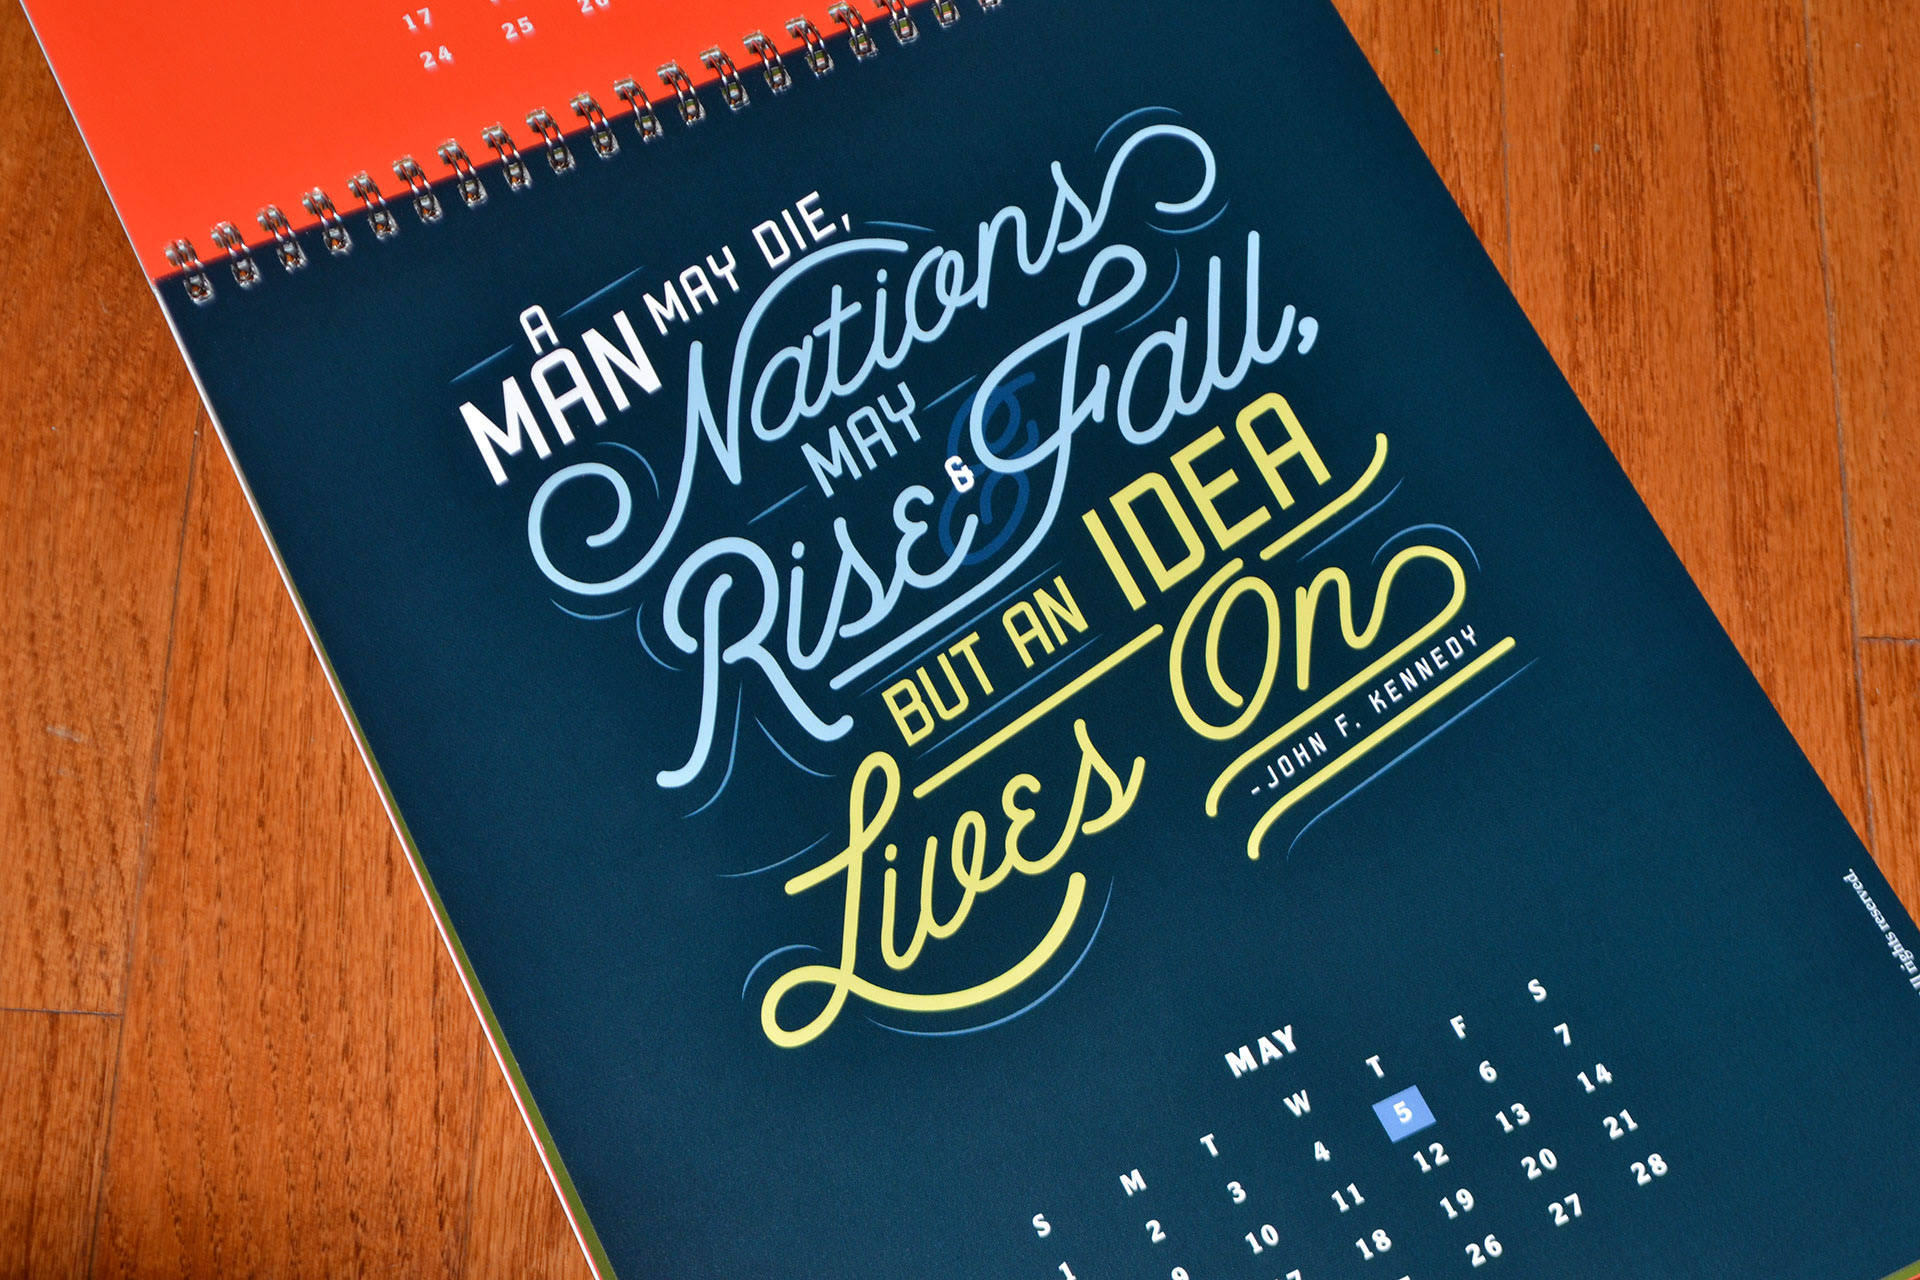 17
25
26
24
A
MAN MAY DIE,
Nations
MAY
Rise & Fall,
BUT AN IDEA
Lives On
-JOHN F. KENNEDY
ll rights reserved.
MAY
S M T W T F S
1 2 3 4 5 6 7
9 10 11 12 13 14
17 18 19 20 21
26 27 28